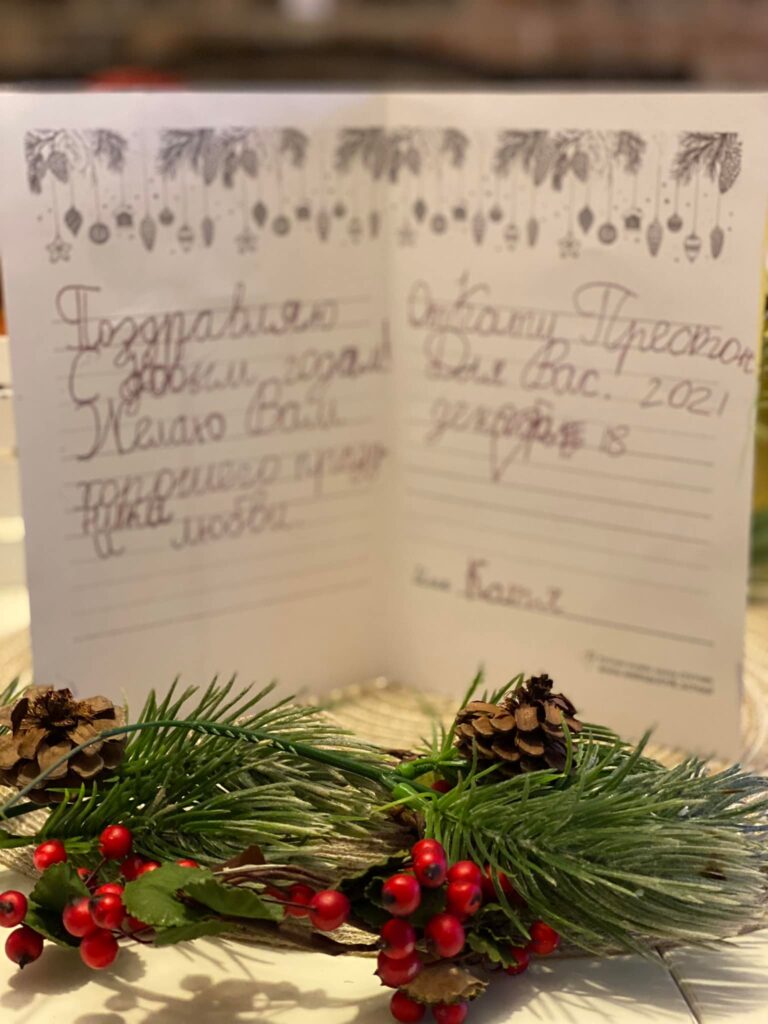 Поздравляю
С новым годам!
Желаю Вам
хорошего празд
ника
любви
От Кати Престон
Для Вас. 2021
декабрь 18
Катя